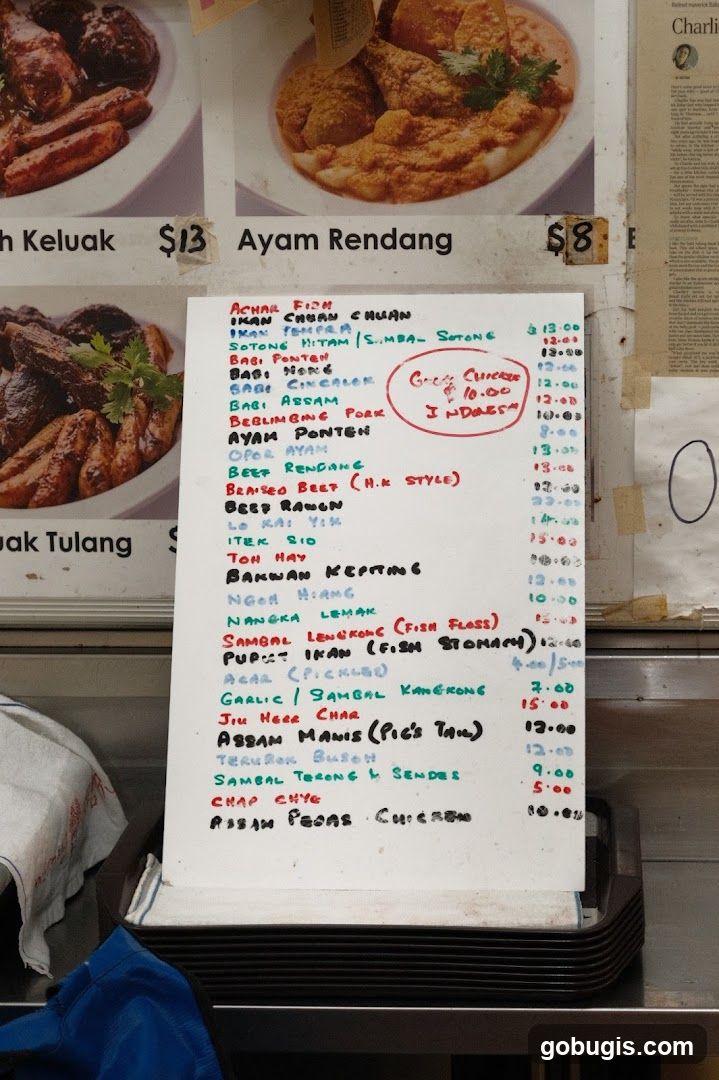 h Keluak $13
Ayam Rendang $8
Charli
uak Tulang $
ACHAR FISH
IKAN CHUAN CHUAN
IKAN TEMPRA $ 13.00
SOTONG HITAM / SAMBAL SOTONG 12.00
BABI PONTEH 12.00
BABI HONG 12.00
BABI CINCALOK 12.00
BABI ASSAM 12.00
BEBLIMBING PORK 10.00
AYAM PONTEH 8.00
OPOR AYAM 13.00
BEEF RENDANG 13.00
BRAISED BEEF (H.K STYLE) 12.00
BEEF RAWON
LO KAI YIK 14.00
ITEK SIO 15.00
TOH HAY 10.00
BAKWAN KEPITING 12.00
NGOH HIANG 10.00
NANGKA LEMAK
SAMBAL LENGKONG (FISH FLOSS) 12.00
PURUT IKAN (FISH STOMACH) 4.00/5.00
ACAR (PICKLES) 7.00
GARLIC / SAMBAL KANGKONG 15.00
JIU HEER CHAR 12.00
ASSAM MANIS (PIG'S TAIL) 12.00
TERUBOK BUSOH 9.00
SAMBAL TERONG & SENDES 5.00
CHAP CHYE
ASSAM PEDAS CHICKEN 10.00
CHICKEN
$ 10.00
INDONESIA
gobugis.com